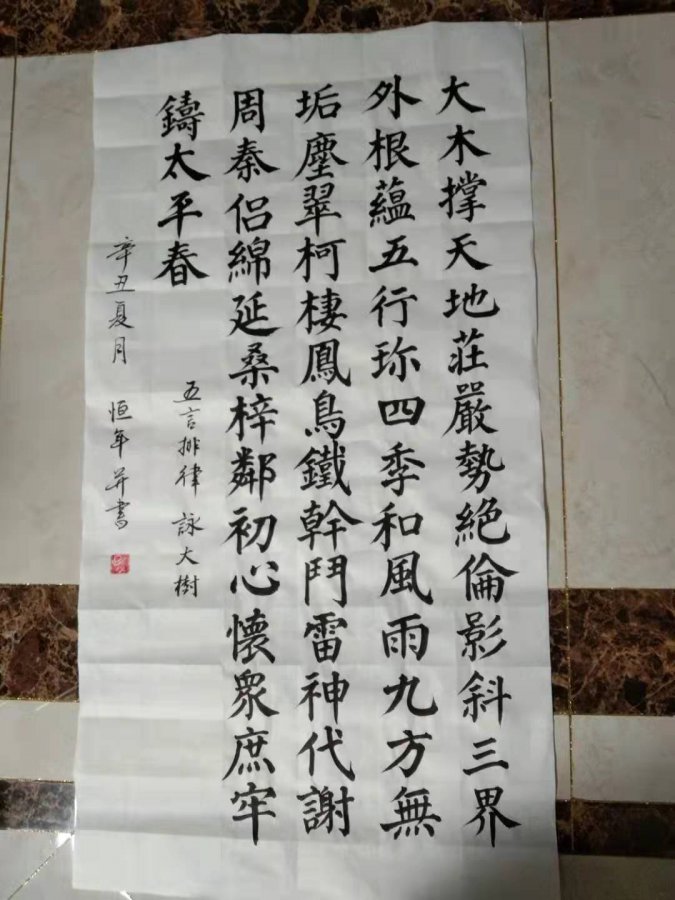 大木撑天地莊嚴勢絕倫影斜三界
外根蘊五行珎四季和風雨九方無
垢塵翠柯棲鳳鳥鐵幹鬥雷神代謝
周秦侣綿延桑梓鄰初心懷眾庶牢
鑄太平春
五言排律 詠大樹
辛丑夏月 恒年并書